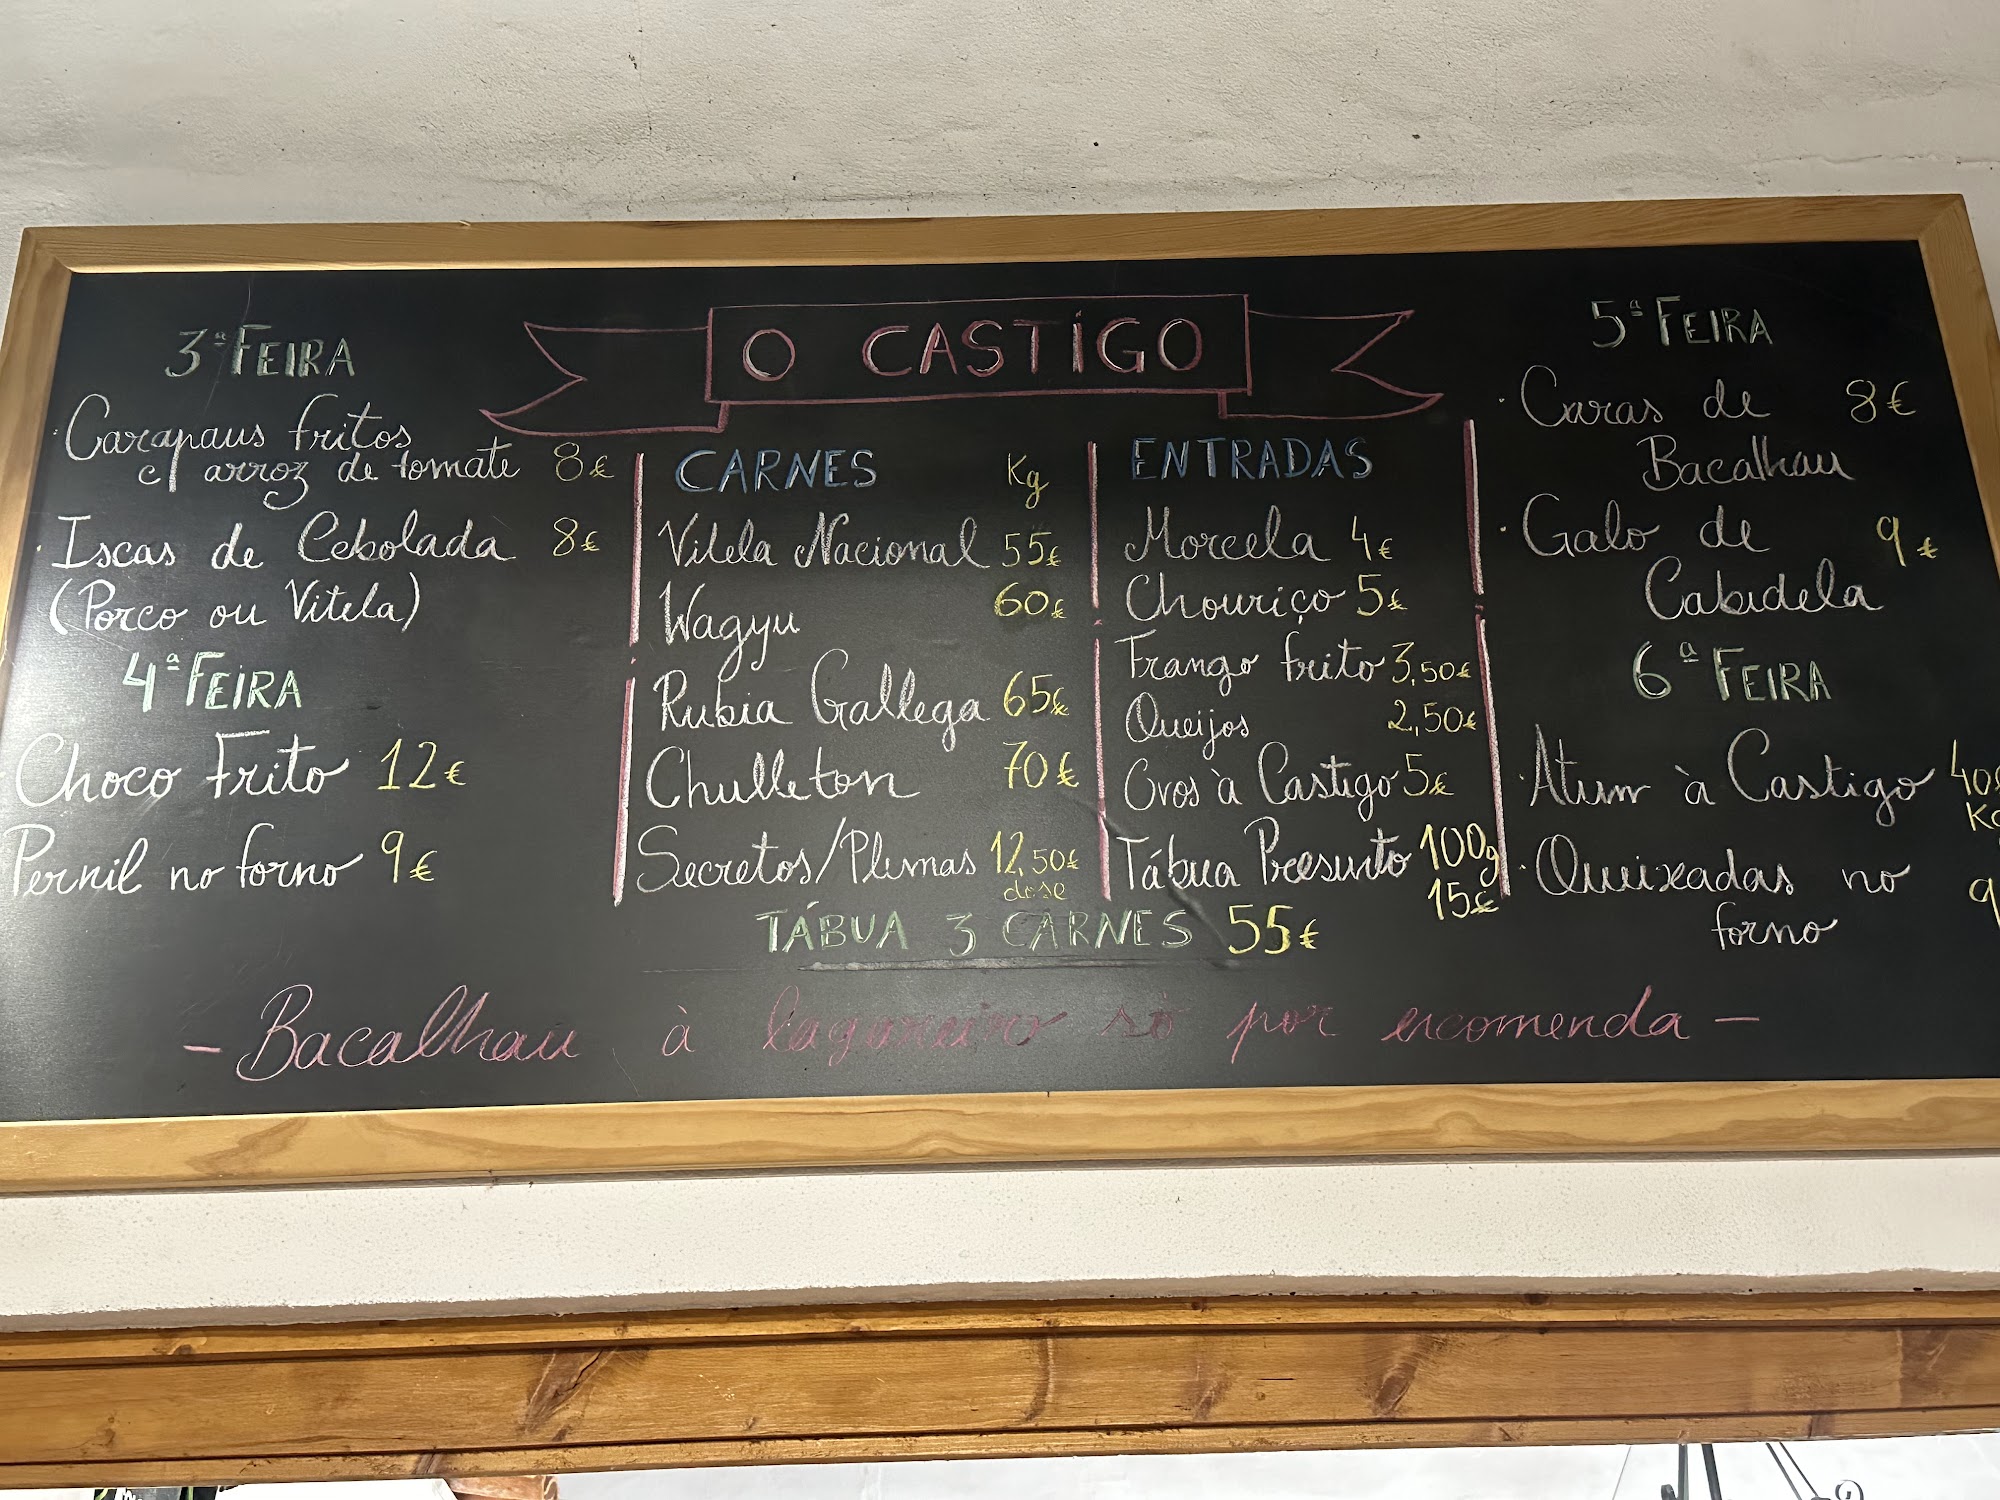 O CASTIGO
3ª FEIRA
· Carapaus fritos
c/ arroz de tomate 8€
· Iscas de Cebolada 8€
(Porco ou Vitela)
4ª FEIRA
Choco Frito 12€
Pernil no forno 9€
CARNES Kg
Vitela Nacional 55€
Wagyu 60€
Rubia Gallega 65€
Chulleton 70€
Secretos/Plumas 12,50€
dose
ENTRADAS
Morcela 4€
Chouriço 5€
Frango frito 3,50€
Queijos 2,50€
Ovos à Castigo 5€
Tábua Presunto 100g
15€
TÁBUA 3 CARNES 55€
5ª FEIRA
· Caras de 8€
Bacalhau
· Galo de 9€
Cabidela
6ª FEIRA
· Atum à Castigo 40€
Kg
· Queixadas no 9
forno
- Bacalhau à lagareiro só por encomenda -